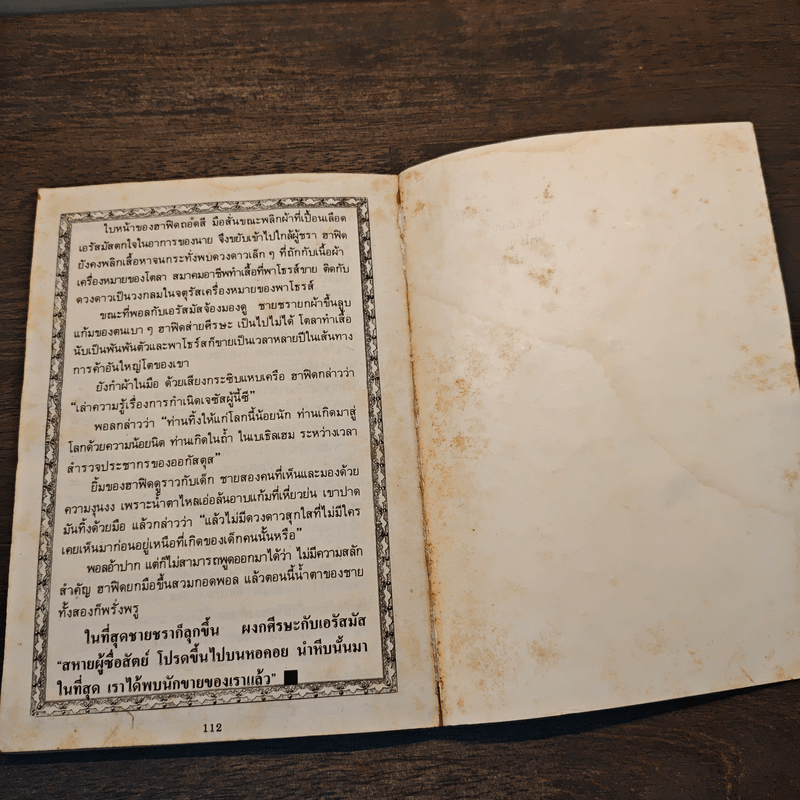 ใบหน้าของฮาฟิดถอดสี มือสั่นขณะพลิกผ้าที่เปื้อนเลือด
เอรัสมัสตกใจในอาการของนาย จึงขยับเข้าไปใกล้ผู้ชรา ฮาฟิด
ยังคงพลิกเสื้อหาจนกระทั่งพบดวงดาวเล็ก ๆ ที่ถักกับเนื้อผ้า
เครื่องหมายของโตลา สมาคมอาชีพทำเสื้อที่พาโธรส์ขาย ติดกับ
ดวงดาวเป็นวงกลมในจตุรัสเครื่องหมายของพาโธรส์
ขณะที่พอลกับเอรัสมัสจ้องมองดู ชายชรายกผ้าขึ้นลูบ
แก้มของตนเบา ๆ ฮาฟิดส่ายศีรษะ เป็นไปไม่ได้ โตลาทำเสื้อ
นับเป็นพันพันตัวและพาโธร์สก็ขายเป็นเวลาหลายปีในเส้นทาง
การค้าอันใหญ่โตของเขา
ยังกำผ้าในมือ ด้วยเสียงกระซิบแหบเครือ ฮาฟิดกล่าวว่า
“เล่าความรู้เรื่องการกำเนิดเจซัสผู้นี้ซี”
พอลกล่าวว่า “ท่านทิ้งให้แก่โลกนี้น้อยนัก ท่านเกิดมาสู่
โลกด้วยความน้อยนิด ท่านเกิดในถ้ำ ในเบเธิลเฮม ระหว่างเวลา
สำรวจประชากรของออกัสตุส”
ยิ้มของฮาฟิดดูราวกับเด็ก ชายสองคนที่เห็นและมองด้วย
ความงุนงง เพราะน้ำตาไหลเอ่อล้นอาบแก้มที่เหี่ยวย่น เขาปาด
มันทิ้งด้วยมือ แล้วกล่าวว่า “แล้วไม่มีดวงดาวสุกใสที่ไม่มีใคร
เคยเห็นมาก่อนอยู่เหนือที่เกิดของเด็กคนนั้นหรือ”
พอลอ้าปาก แต่ก็ไม่สามารถพูดออกมาได้ว่า ไม่มีความสลัก
สำคัญ ฮาฟิดยกมือขึ้นสวมกอดพอล แล้วตอนนี้น้ำตาของชาย
ทั้งสองก็พรั่งพรู
ในที่สุดชายชราก็ลุกขึ้น ผงกศีรษะกับเอรัสมัส
“สหายผู้ซื่อสัตย์ โปรดขึ้นไปบนหอคอย นำหีบนั้นมา
ในที่สุด เราได้พบนักขายของเราแล้ว”
112